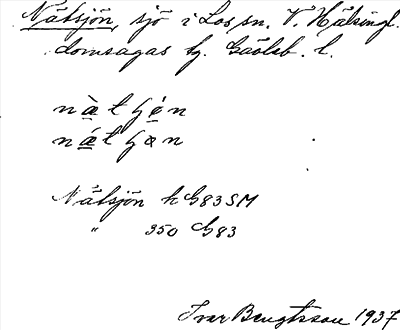 Nätsjön, sjö i Los sn. V. Hälsingl.
domsagas tg. Gävleb. l.
Nätsjön k G83SM
" 350 G83
Ivar Bengtsson 1937